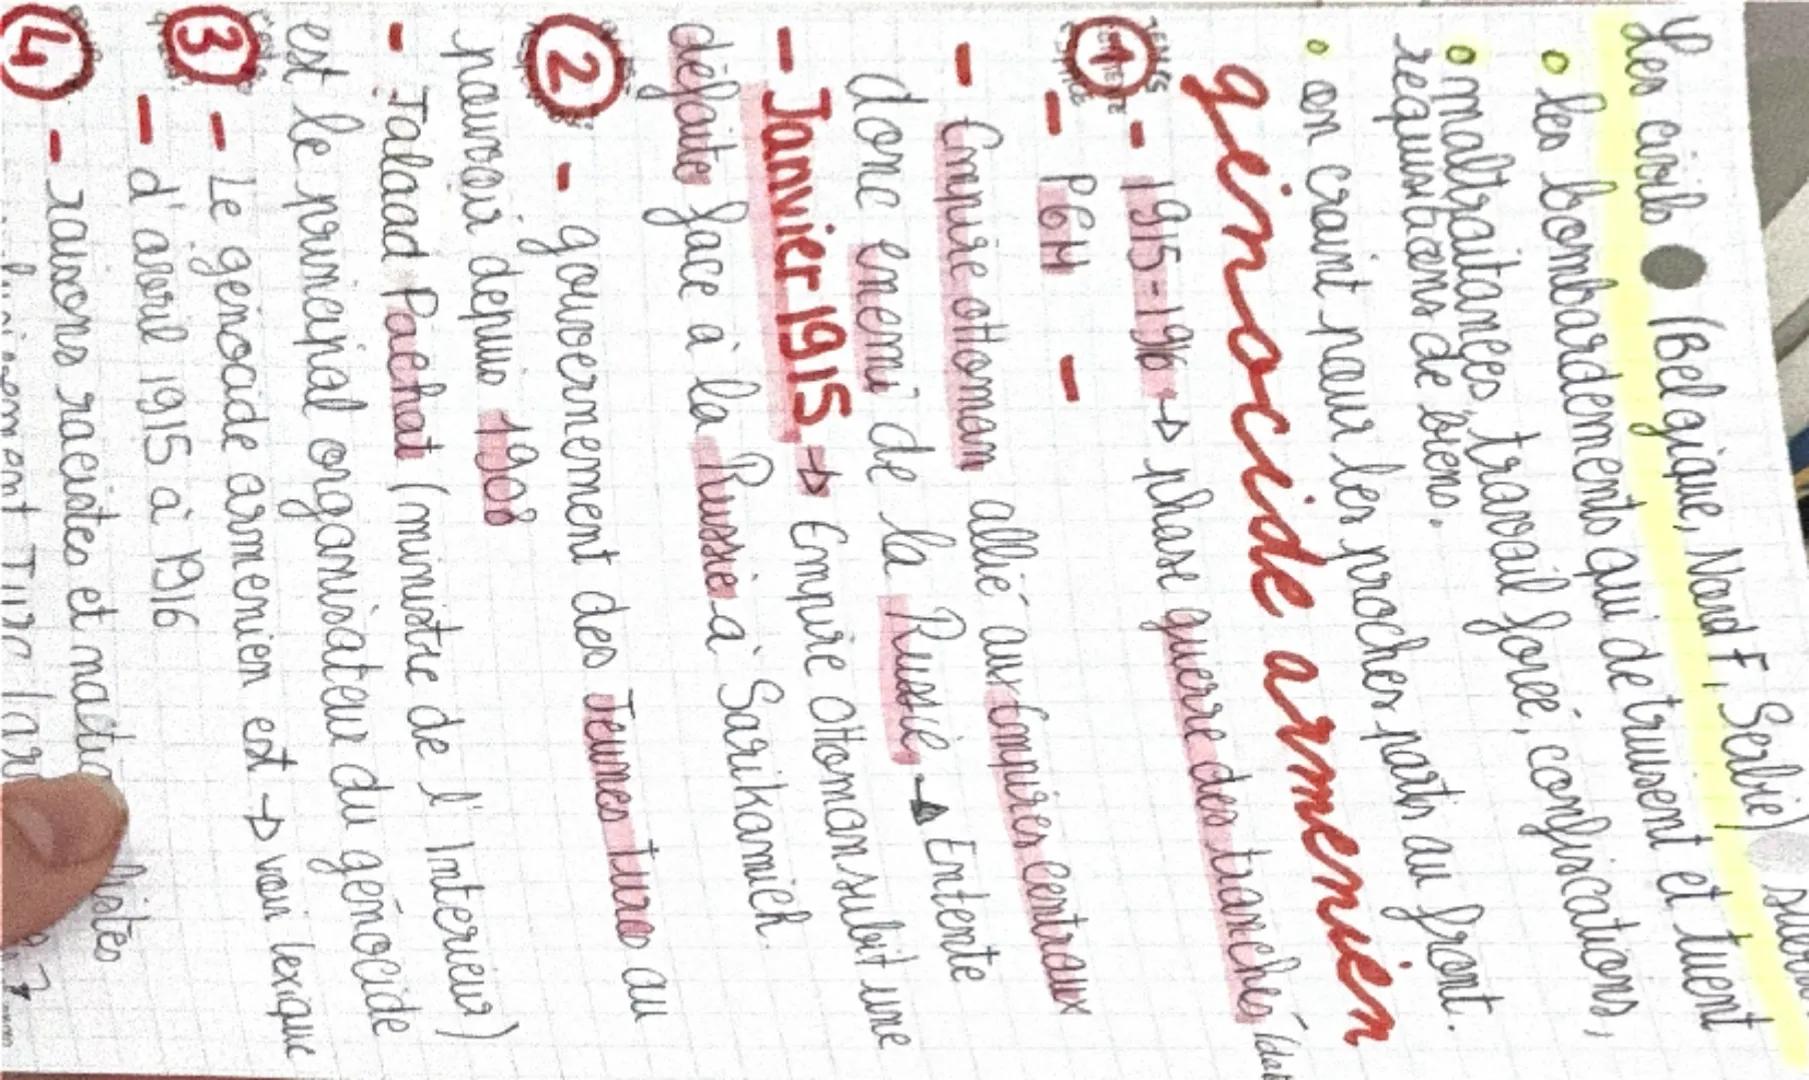 Les civils (Belgique, Nord F, Serbie)
• les bombardements qui detruisent et tuent
• maltraitances, travail forcé, confiscations,
requisitions de biens.
• on craint pour les proches partis au front.
génocide armenien
1 - 1915-1916 → phase guerre des tranchés
- PGM -
- Empire ottoman allié aux Empires Centraux
donc enemi de la Russie → Entente
- Janvier 1915 → Empire ottoman subit une
défaite face à la Russie à Sarikamich.
2 - gouvernement des Jeunes turcs au
pouvoir depuis 1908
- Talaad Pachat (ministre de l'Interieur)
est le principal organisateur du génocide
3 - Le génocide armenien est → voir lexique
- d'avril 1915 à 1916
4 - raisons racistes et